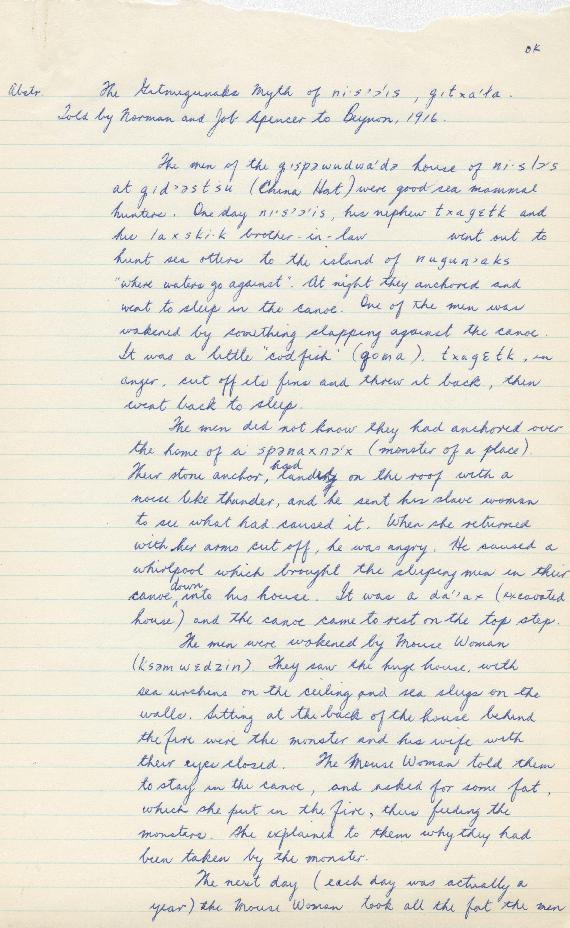 OK
Abstr. The Gitnugunaks Myth of ni·s'ɔ'is, gitxa'ła.
Told by Norman and Job Spencer to Beynon, 1916.
The men of the gıspəwudwa'də house of ni·s'ɔ's
at gıd'ɔstsu (China Hat) were good sea mammal
hunters. One day nı·s'ɔ'ıs, his nephew txagɛtk and
his laxski·k brother-in-law went out to
hunt sea otters to the island of nugun'aks
"where waters go against". At night they anchored and
went to sleep in the canoe. One of the men was
wakened by something slapping against the canoe.
It was a little 'codfish' (qoma). txagɛtk, in
anger, cut off its fins and threw it back, then
went back to sleep.
The men did not know they had anchored over
the home of a spənaxnɔ'x (monster of a place).
Their stone anchor, had landed on the roof with a
noise like thunder, and he sent his slave woman
to see what had caused it. When she returned
with her arms cut off, he was angry. He caused a
whirlpool which brought the sleeping men in their
canoe down into his house. It was a da''ax (excavated
house) and the canoe came to rest on the top step.
The men were wakened by Mouse Woman
(ksəmwɛdzin). They saw the huge house, with
sea urchins on the ceiling and sea slugs on the
walls. Sitting at the back of the house behind
the fire were the monster and his wife with
their eyes closed. The Mouse Woman told them
to stay in the canoe, and asked for some fat,
which she put in the fire, thus feeding the
monsters. She explained to them why they had
been taken by the monster.
The next day (each day was actually a
year) the Mouse Woman took all the fat the men